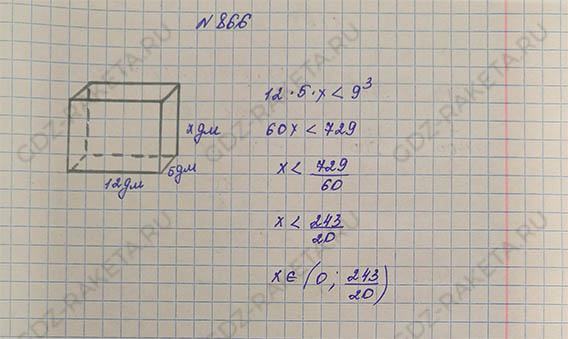 N 866
12 · 5 · x < 9³
60x < 729
x < 729/60
x < 243/20
x ∈ (0; 243/20)
x дм
5дм
12дм
GDZ-RAKETA.RU
GDZ-RAKETA.RU
GDZ-RAKETA.RU
GDZ-RAKETA.RU
GDZ-RAKETA.RU
GDZ-RAKETA.RU